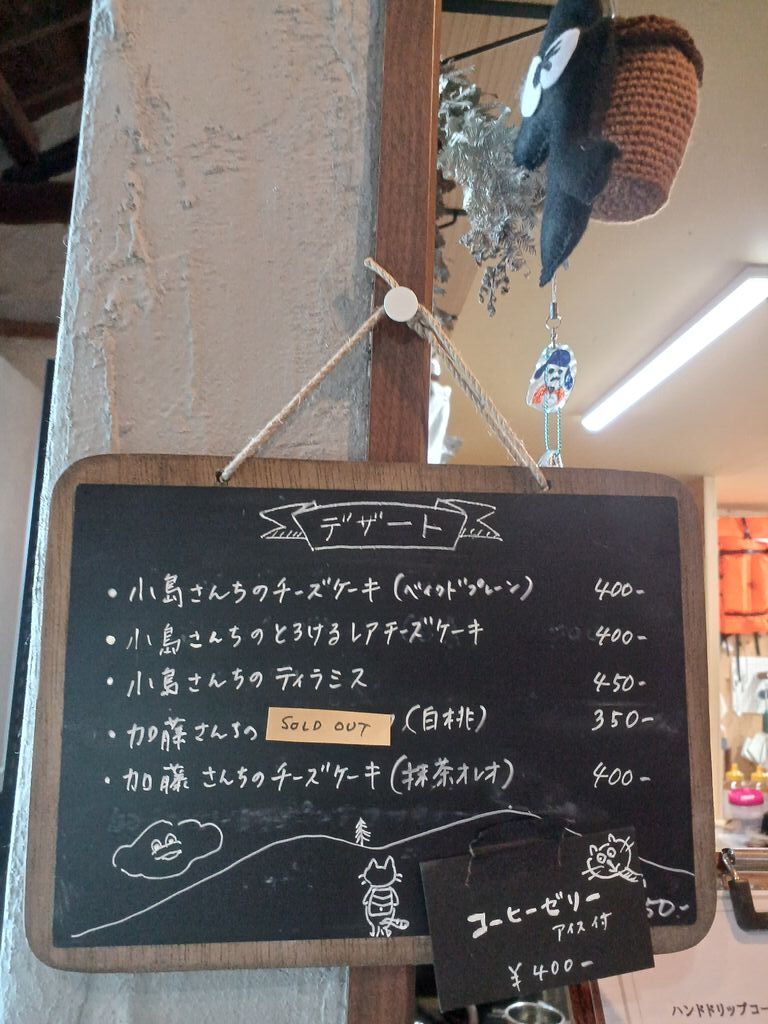 デザート
・小島さんちのチーズケーキ(ベイクドプレーン) 400-
・小島さんちのとろけるレアチーズケーキ 400-
・小島さんちのティラミス 450-
・加藤さんちの SOLD OUT (白桃) 350-
・加藤さんちのチーズケーキ(抹茶オレオ) 400-
50-
コーヒーゼリー
アイス付
¥400-
ハンドドリップコー